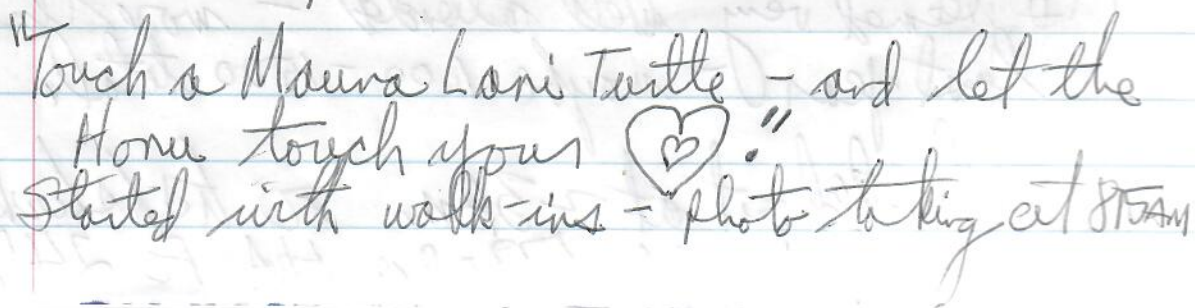 "Touch a Mauna Lani Turtle - and let the
Honu touch your ♡."
Started with walk-ins - photo taking at 815AM